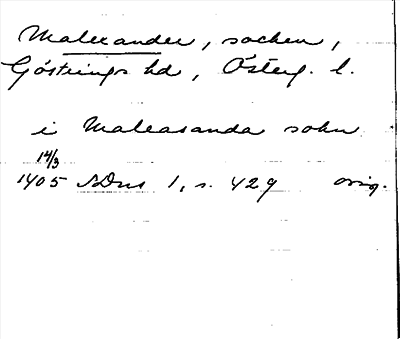 Malexander, socken,
Göstrings hd, Österg. l.
i Maleasanda sokn
14/3
1405 SDns 1, s. 429 orig.